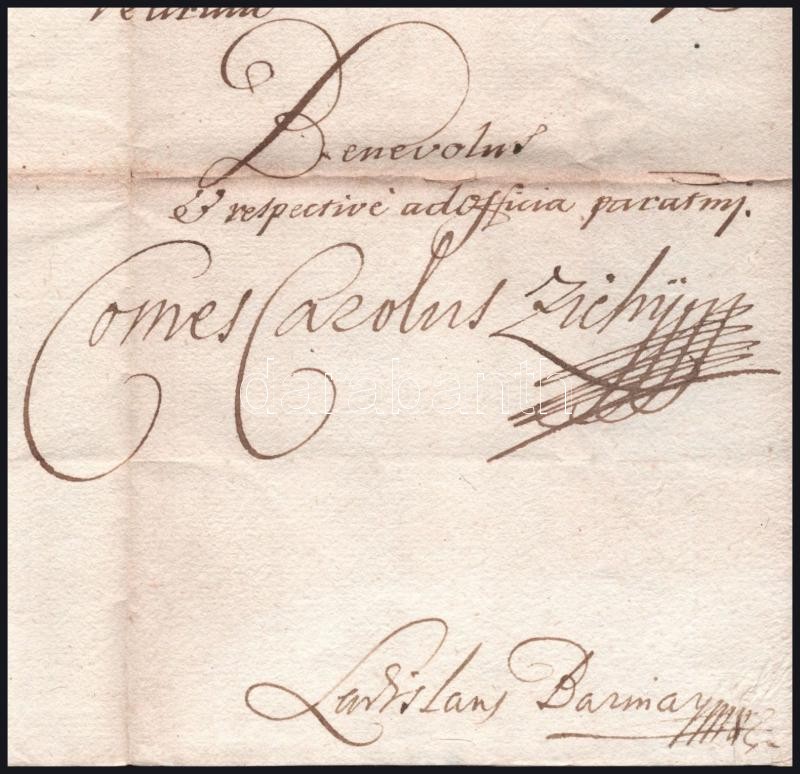 Benevolus
& respective ad officia paratmj.
Comes Carolus Zichÿ
darabanth
Ladislaus Barinay